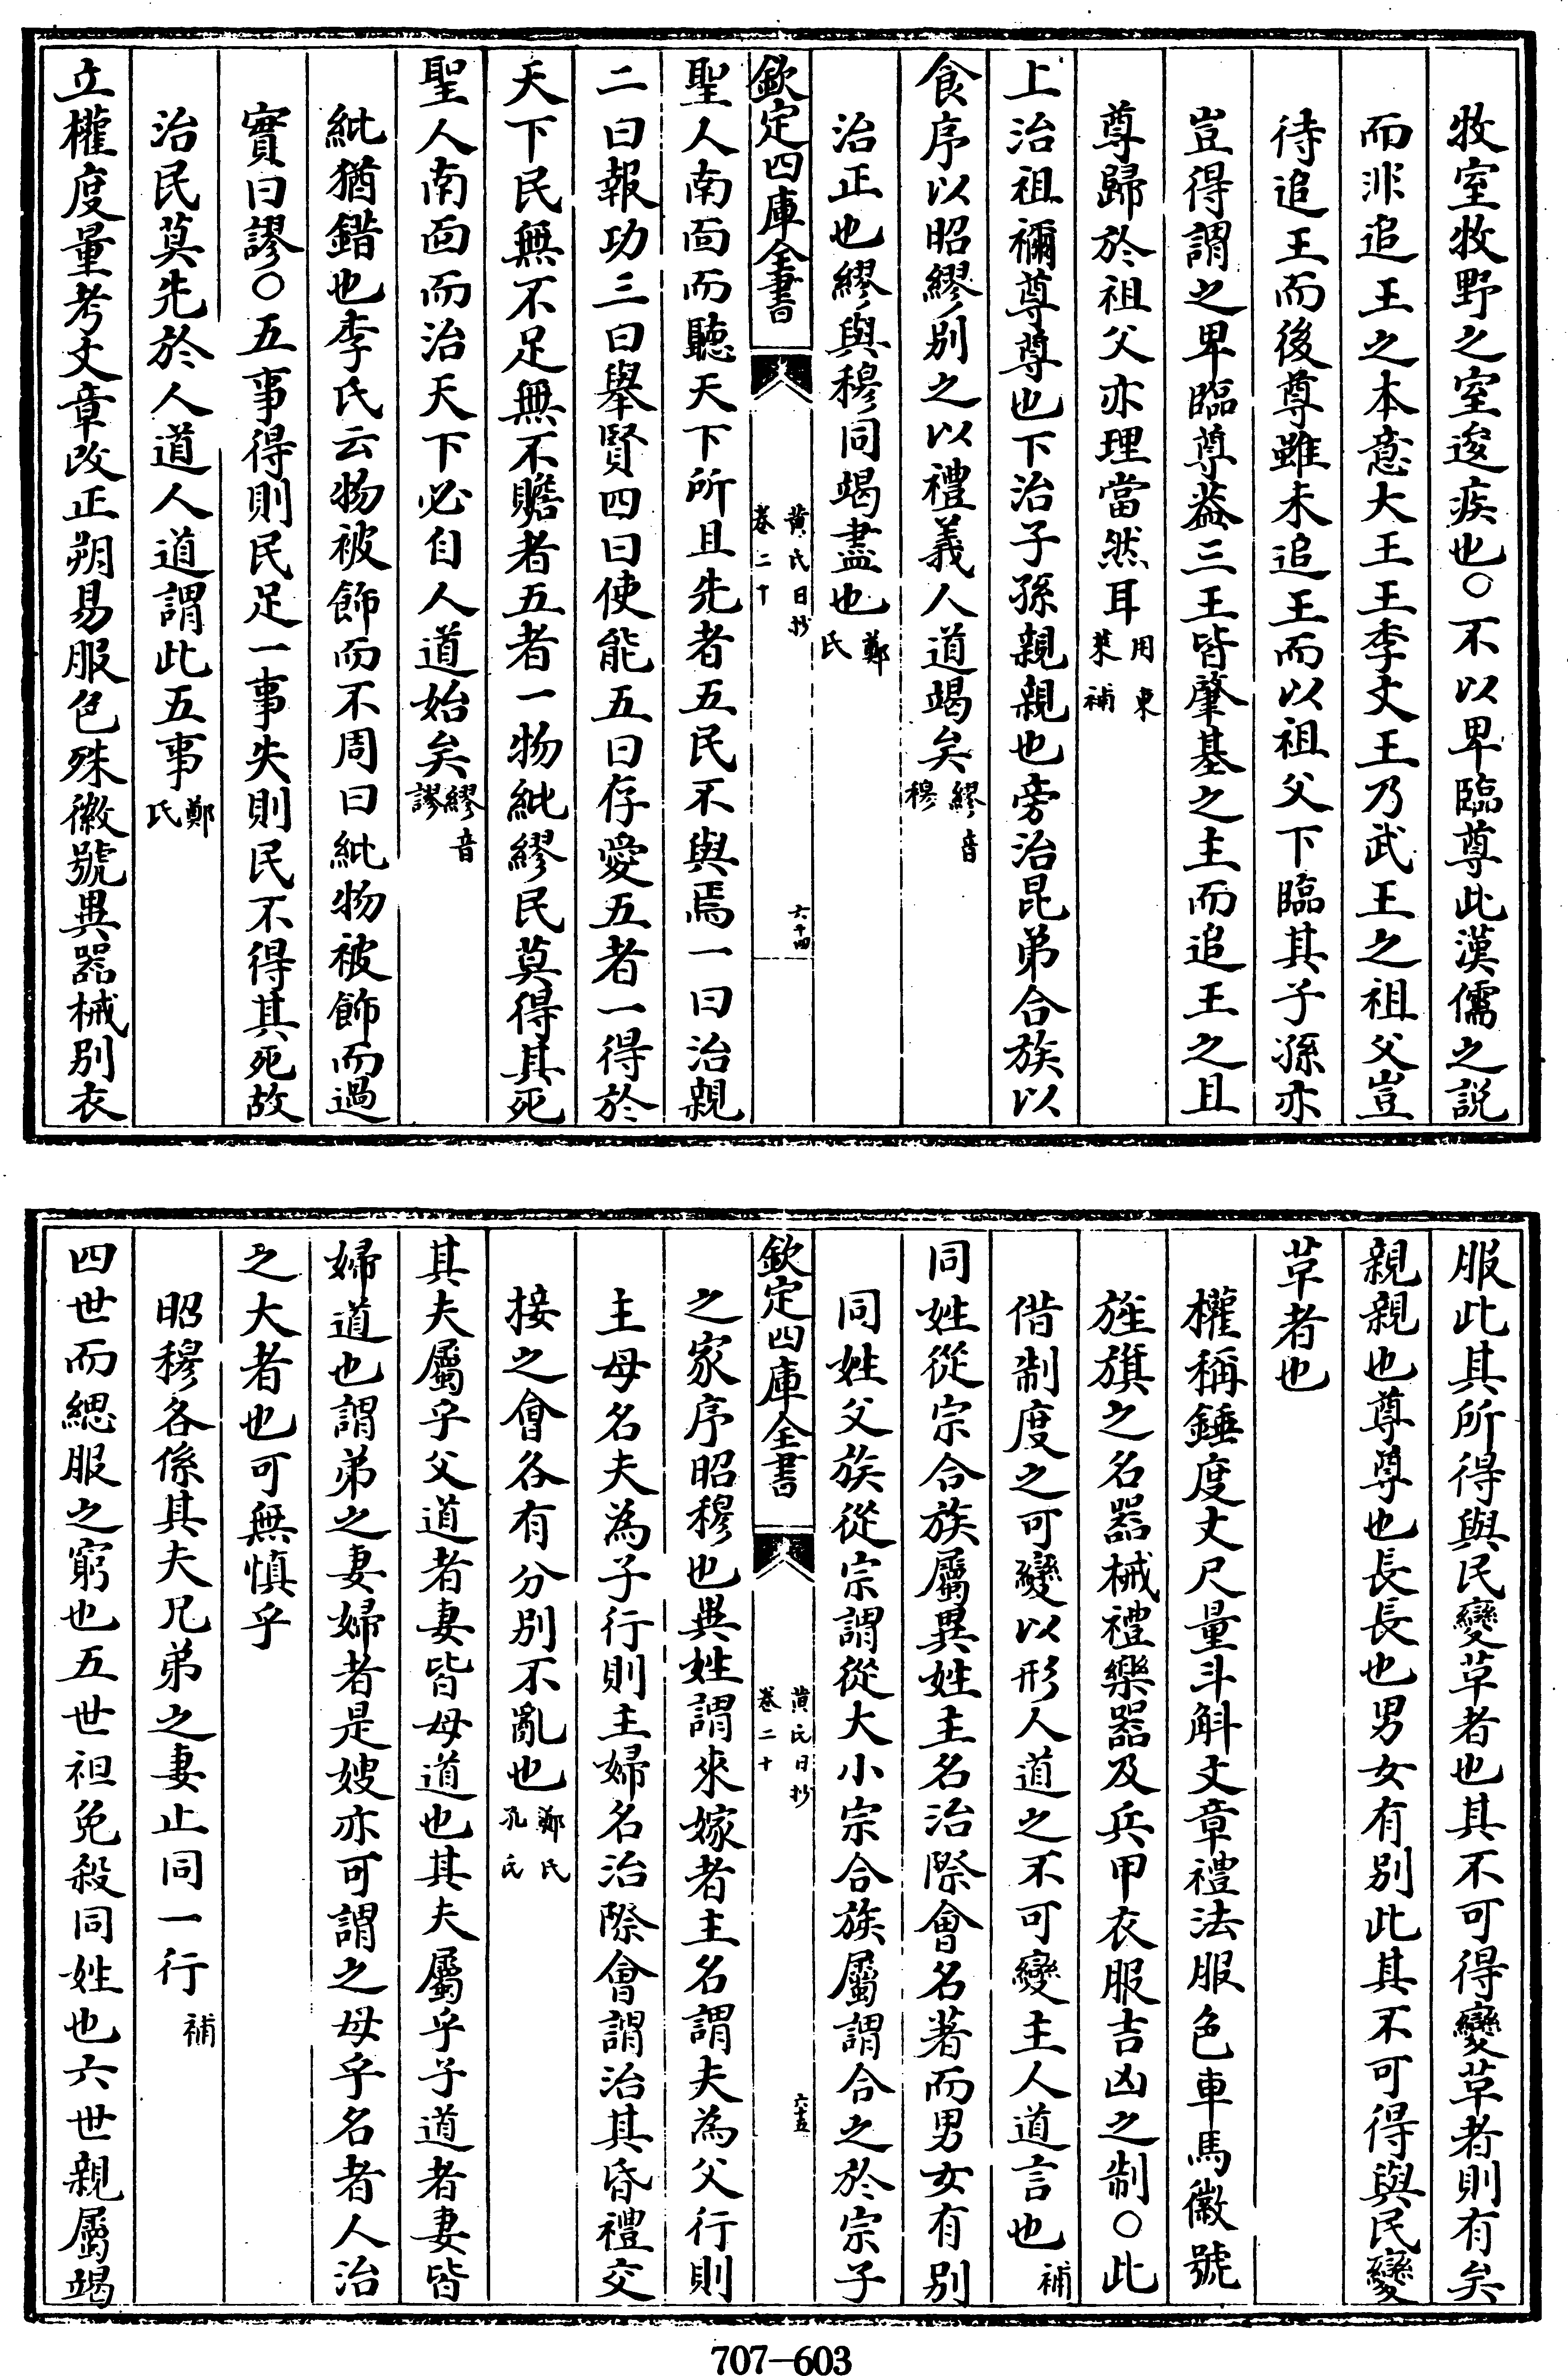 牧室牧野之室逡疾也○不以卑臨尊此漢儒之説
而非追王之本意大王王季文王乃武王之祖父豈
待追王而後尊雖未追王而以祖父下臨其子孫亦
豈得謂之卑臨尊葢三王皆肇基之主而追王之且
尊歸於祖父亦理當然耳用東萊補
上治祖禰尊尊也下治子孫親親也旁治昆弟合族以
食序以昭繆别之以禮義人道竭矣繆音穆
治正也繆與穆同竭盡也鄭氏
欽定四庫全書
黄氏日抄
卷二十
六十四
聖人南靣而聽天下所且先者五民不與焉一曰治親
二曰報功三曰舉賢四曰使能五曰存愛五者一得於
天下民無不足無不贍者五者一物紕繆民莫得其死
聖人南靣而治天下必自人道始矣繆音謬
紕猶錯也李氏云物被飾而不周曰紕物被飾而過
實曰謬○五事得則民足一事失則民不得其死故
治民莫先於人道人道謂此五事鄭氏
立權度量考文章改正朔易服色殊徽號異器械别衣
服此其所得與民變革者也其不可得變革者則有矣
親親也尊尊也長長也男女有别此其不可得與民變
革者也
權稱錘度丈尺量斗斛文章禮法服色車馬徽號
旌旗之名器械禮樂器及兵甲衣服吉凶之制○此
偕制度之可變以形人道之不可變主人道言也補
同姓從宗合族屬異姓主名治際會名著而男女有别
同姓父族從宗謂從大小宗合族屬謂合之於宗子
欽定四庫全書
黄氏日抄
卷二十
六十五
之家序昭穆也異姓謂來嫁者主名謂夫為父行則
主母名夫為子行則主婦名治際會謂治其昏禮交
接之會各有分别不亂也鄭氏孔氏
其夫屬乎父道者妻皆母道也其夫屬乎子道者妻皆
婦道也謂弟之妻婦者是嫂亦可謂之母乎名者人治
之大者也可無慎乎
昭穆各係其夫兄弟之妻止同一行補
四世而緦服之窮也五世袒免殺同姓也六世親屬竭
707-603